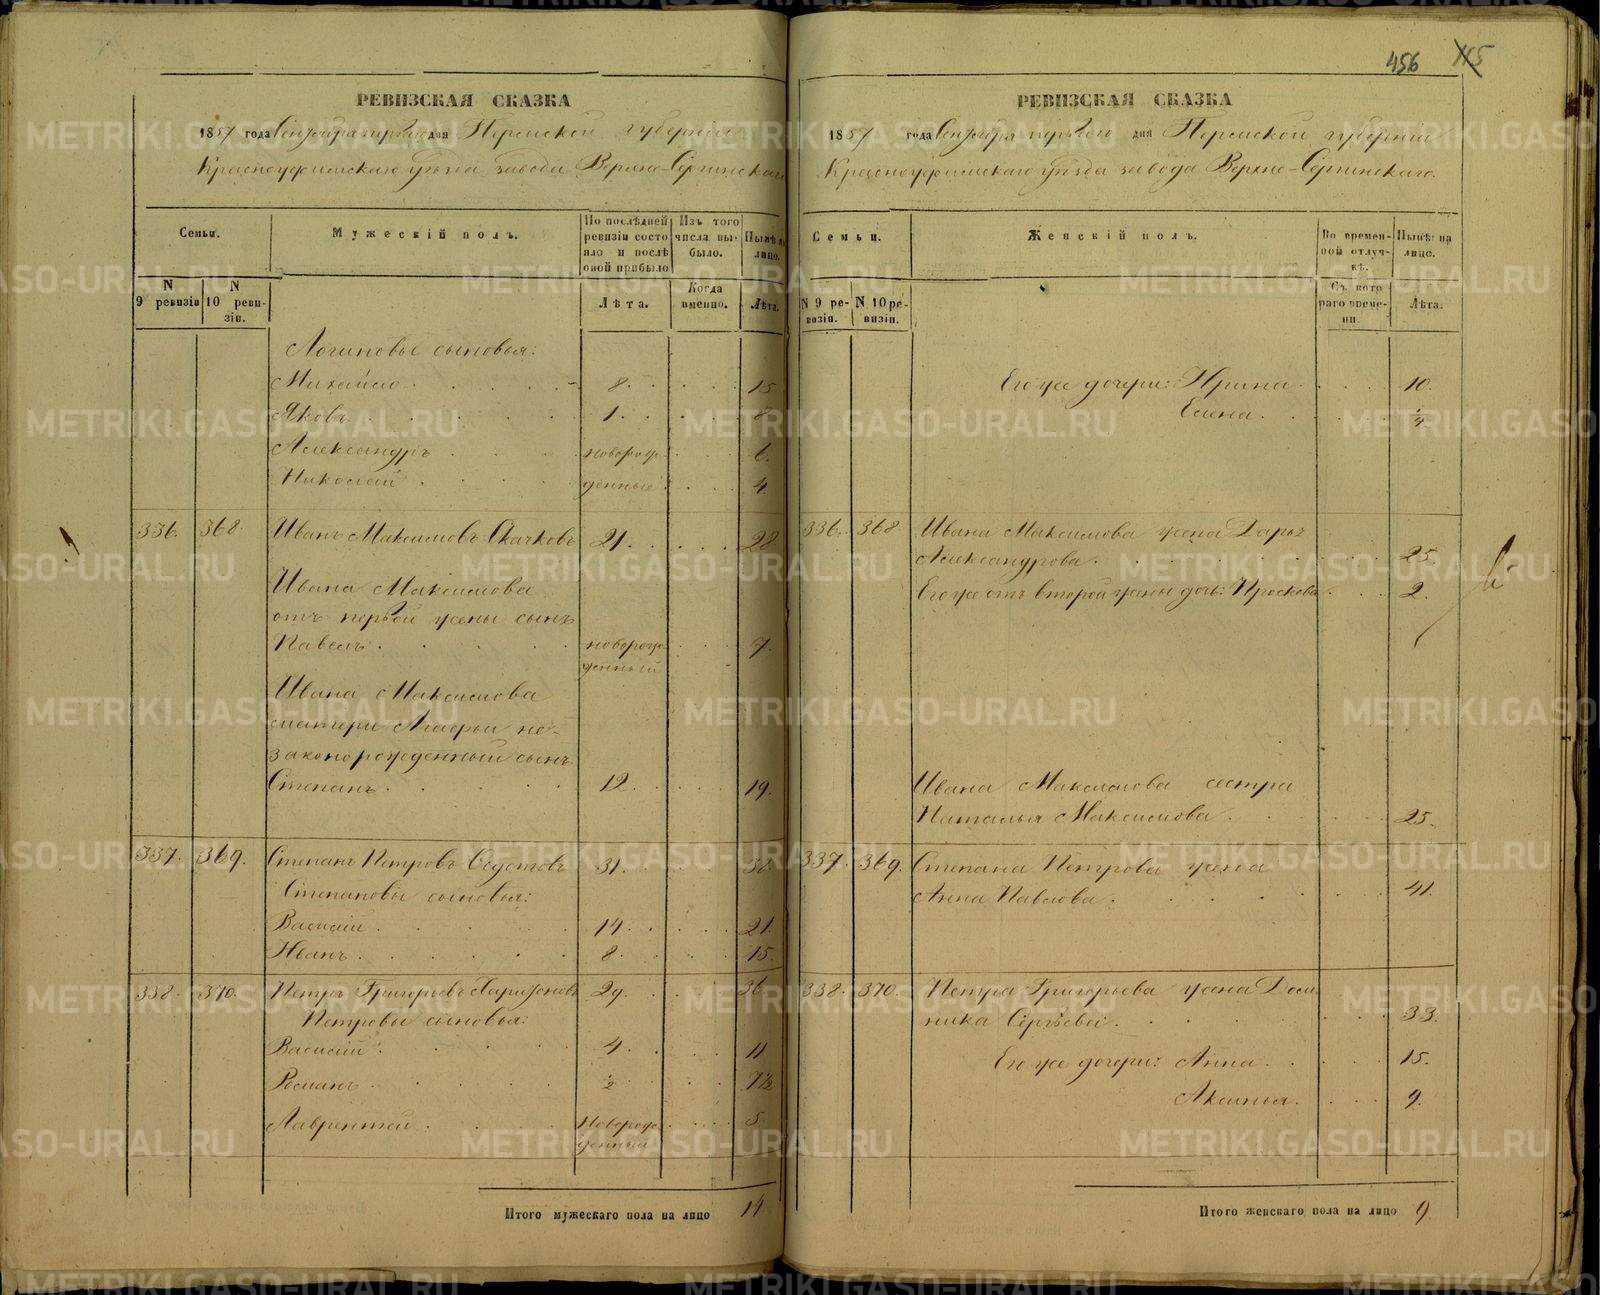 456 115
РЕВИЗСКАЯ СКАЗКА
1857 года Сентября перваго дня Пермской губернiи
Красноуфимскаго уѣзда завода Верхне-Сергинскаго
Семьи.
Мужескiй полъ.
По послѣдней ревизiи состояло и послѣ оной прибыло
Изъ того числа выбыло.
Нынѣ на лицо.
N 9 ревизiи
N 10 ревизiи.
Лѣта.
Когда именно.
Лѣта.
Логиновы сыновья:
Михайло 8. 15
Яковъ 1. 8
Александръ новорож 6.
Николай денные 4
336. 368. Иванъ Максимовъ Скачковъ 21. 28
Ивана Максимова
отъ первой жены сынъ
Павелъ новорож 7.
денный
Ивана Максимова
матери Агафьи не-
законорожденный сынъ
Степанъ 12. 19.
337. 369. Степанъ Петровъ Ѳедотовъ 31. 38
Степановы сыновья:
Василiй 14. 21.
Иванъ 8. 15.
338. 370. Петръ Григорьевъ Харитоновъ 29. 36
Петровы сыновья:
Василiй 4. 11
Романъ ½ 7½
Лаврентей Новорож 5
денный
Итого мужескаго пола на лицо 14
РЕВИЗСКАЯ СКАЗКА
1857 года Сентября перваго дня Пермской губернiи
Красноуфимскаго уѣзда завода Верхне-Сергинскаго.
Семьи.
Женскiй полъ.
Во временной отлучкѣ.
Нынѣ на лицо.
N 9 ревизiи.
N 10 ревизiи.
Съ котораго времени.
Лѣта.
Его же дочери: Ирина 10.
Елена. ¼
336. 368 Ивана Максимова жена Дарья
Александрова. 25.
Его же отъ второй жены дочь: Просковья 2.
Ивана Максимова сестра
Наталья Максимова 25.
337. 369. Степана Петрова жена
Анна Павлова. 41.
338. 370. Петра Григорьева жена Дом
ника Сергѣева. 33.
Его же дочери: Анна. 15.
Аксинья. 9.
Итого женскаго пола на лицо 9
METRIKI.GASO-URAL.RU